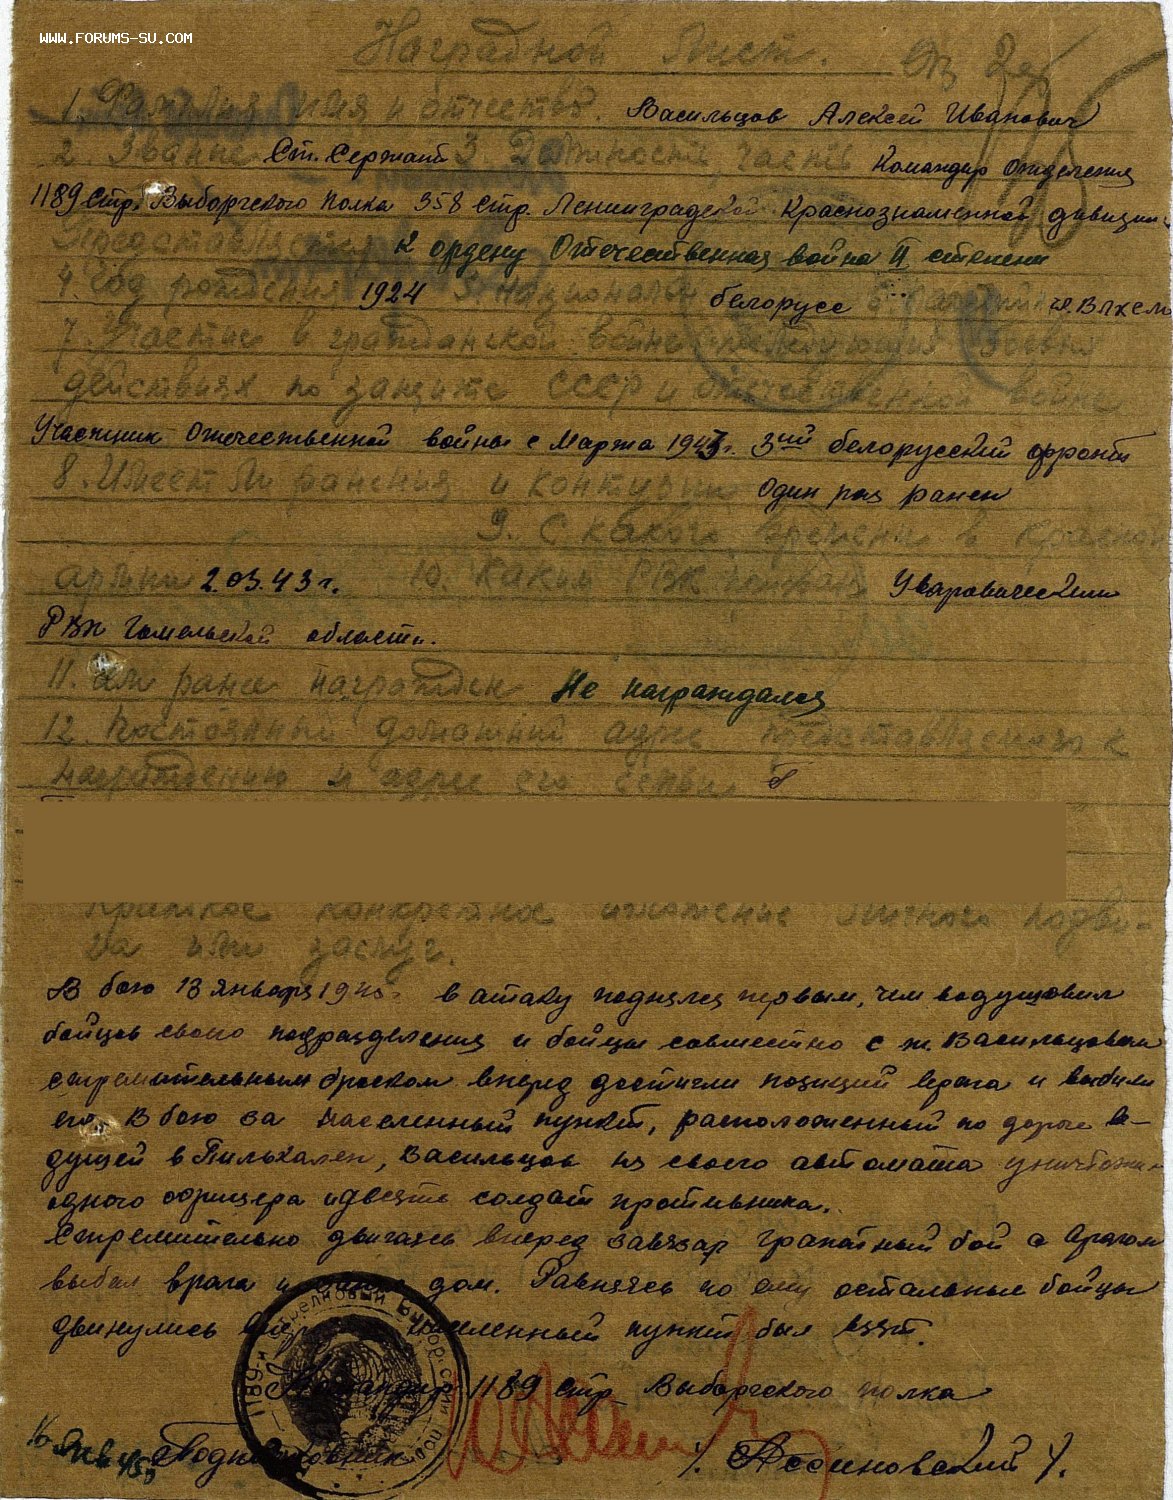 WWW.FORUMS-SU.COM
Наградной Лист.
1. Фамилия имя и отчество. Васильцов Алексей Иванович
2. Звание Ст. Сержант 3. Должность, часть Командир отделения
1189 Стр. Выборгского полка 358 стр. Ленинградской Краснознаменной дивизии
Представляется к ордену Отечественная война II степени
4. Год рождения 1924 5. Национальн белорусс 6. Партийн чл. ВЛКСМ
7. Участие в гражданской войне последующих боевых
действиях по защите СССР и отечественной войне
Участник Отечественной войны с Марта 1943 г. 3ий белорусский фронт
8. Имеет ли ранения и контузии Один раз ранен
9. С какого времени в Красной
армии 2.03.43 г. 10. Каким РВК призван Уваровическим
РВК Гомельской области.
11. Чем ранее награжден Не награждался
12. Постоянный домашний адрес представляемого к
награждению и адрес его семьи
Краткое конкретное изложение личного подви-
га или заслуг.
В бою 13 января 1945 в атаку поднялся первым, чем
бойцов своего подразделения и бойцы совместно с т. Васильцовым
стремительным броском вперед достигли позиций врага и выбили
его. В бою за населенный пункт, расположенный по дороге ве-
дущей в Пилькален, Васильцов из своего автомата уничтожил
одного офицера и двести солдат противника.
Стремительно двигаясь вперед завязар гранатный бой с врагом
выбил врага и занял дом. Равняясь по ему остальные бойцы
двинулись вперед населенный пункт был взят.
Командир 1189 стр Выборгского полка
16 янв 45 Подполковник /. Асеиновский /.
1189-й стрелковый Выборгский полк